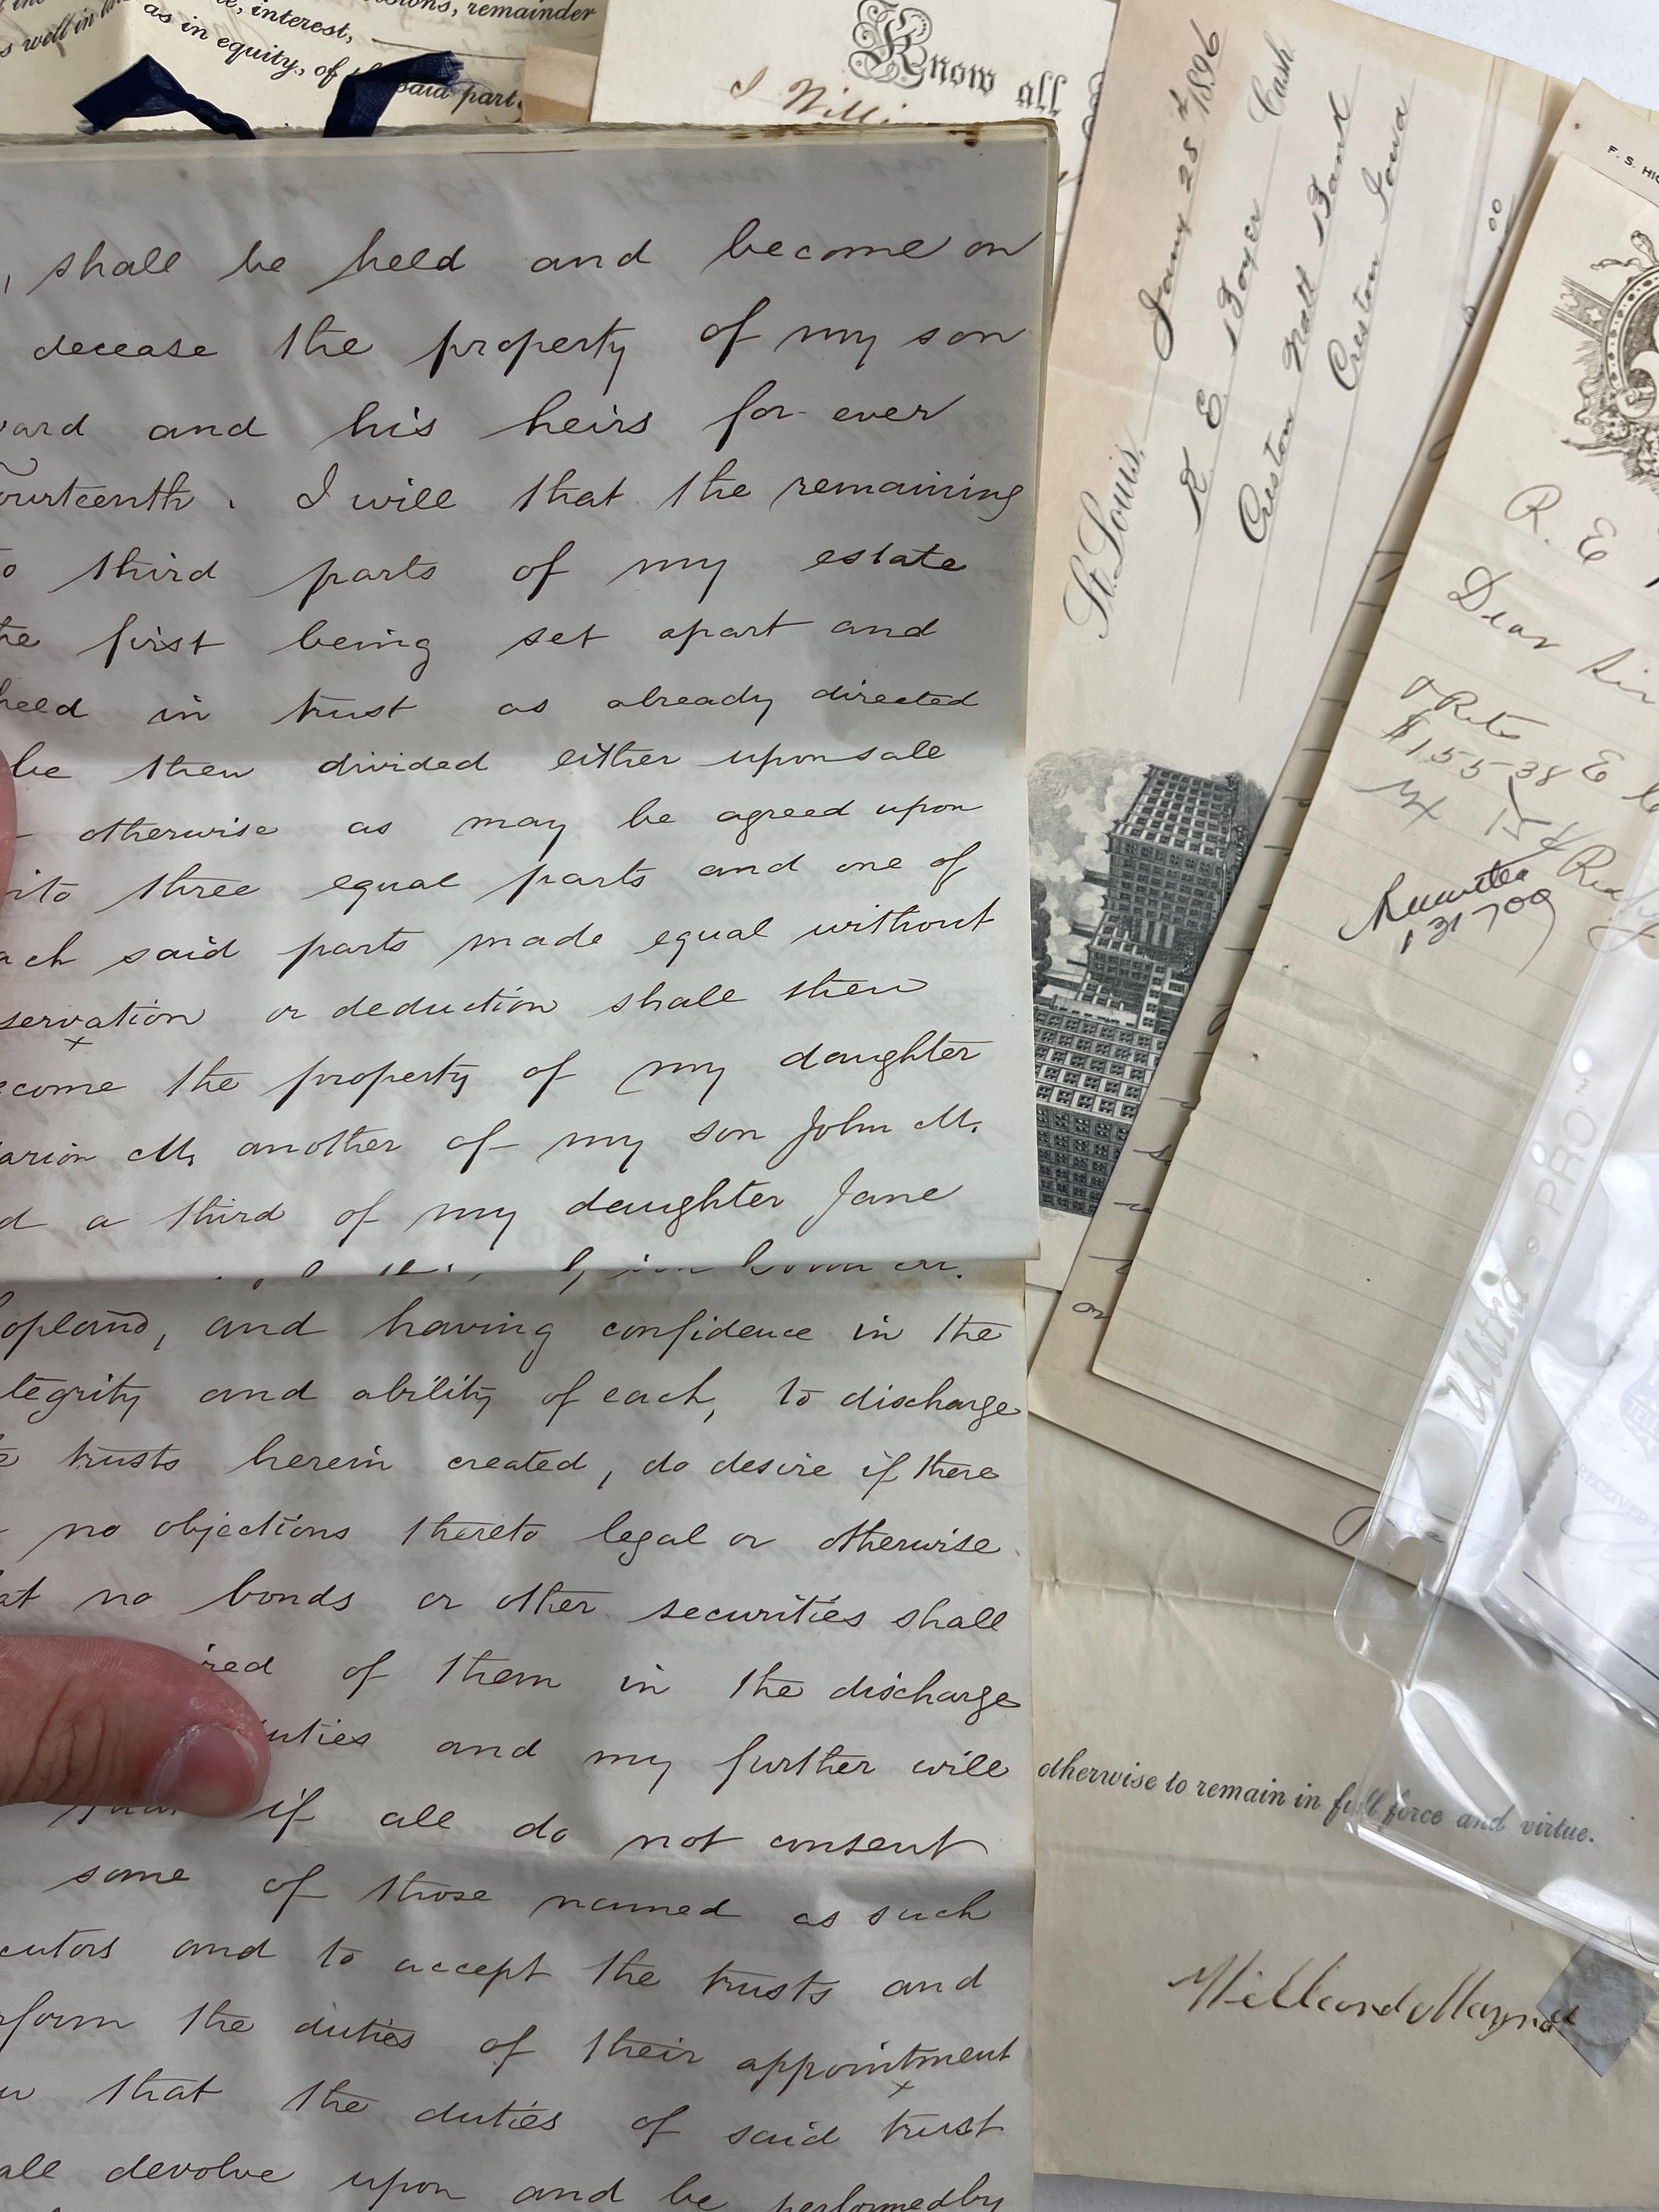 sions, remainder
s well in
interest,
as in equity, of
said part
Know all
I Willi
, shall be held and become on
decease the property of my son
ard and his heirs for ever
ourteenth. I will that the remaining
o third parts of my estate
he first being set apart and
held in trust as already directed
be then divided either upon sale
otherwise as may be agreed upon
ito three equal parts and one of
ach said parts made equal without
servation or deduction shall then
ecome the property of my daughter
arion M. another of my son John M.
d a third of my daughter Jane
opland, and having confidence in the
tegrity and ability of each, to discharge
trusts herein created, do desire if there
no objections thereto legal or otherwise
at no bonds or other securities shall
ired of them in the discharge
uties and my further will
if all do not consent
some of those named as such
cutors and to accept the trusts and
rform the duties of their appointment
that the duties of said trust
all devolve upon and be performed by
St. Louis, Jany 25 1896
R E Boyer Cash
Creston Natl Bank
Creston Iowa
F. S. HIG
R. E
Dear Sir
$155 38
Ultra PRO
otherwise to remain in full force and virtue.
Willard Mayna